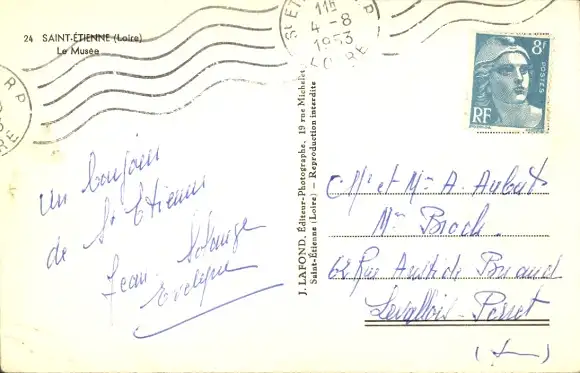 24 SAINT-ÉTIENNE (Loire)
Le Musée
R P
St ETIENNE R P
11H
4 - 8
1953
LOIRE
8F
POSTES
RF
un bonjour
de St Etienne
Jean. Solange
Evelyne
J. LAFOND, Éditeur-Photographe, 19 rue Michelet
Saint-Étienne (Loire) – Reproduction interdite
Mr et Me A. Aubert
Me Broch.
62 Rue Aristide Briand
Levallois-Perret